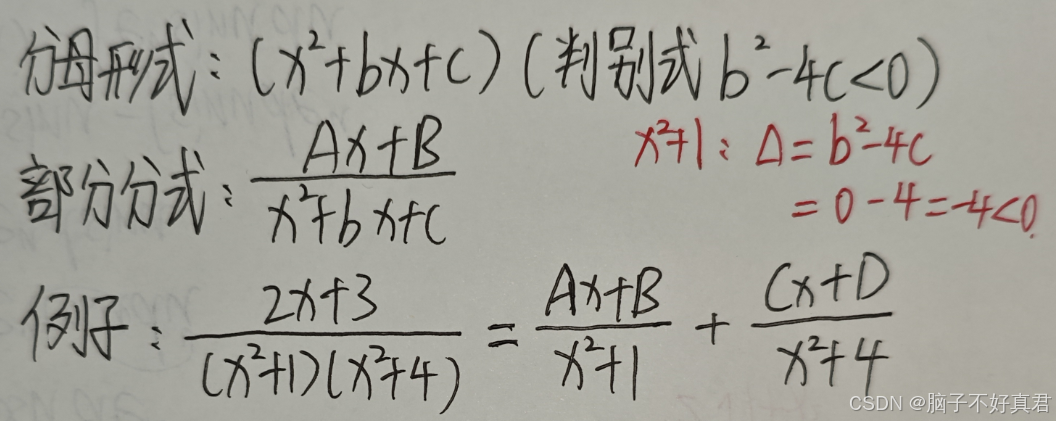 分母形式：(x²+bx+c)(判别式 b²-4c<0)
部分分式：(Ax+B)/(x²+bx+c)
x²+1：Δ=b²-4c
=0-4=-4<0.
例子：(2x+3)/((x²+1)(x²+4)) = (Ax+B)/(x²+1) + (Cx+D)/(x²+4)
CSDN @脑子不好真君